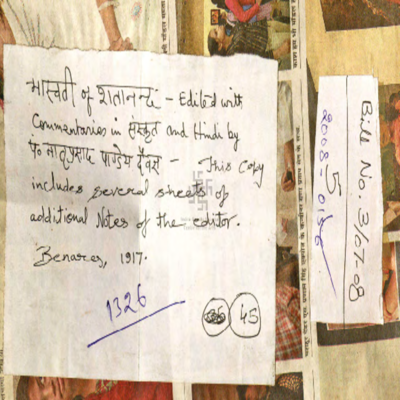 भास्वती of शतानन्द - Edited with
Commentaries in संस्कृत and Hindi by
पं० मातृप्रसाद पाण्डेय दैवज्ञ - This Copy
includes several sheets of
additional Notes of the editor.
Benares, 1917.
1326
45
Bill No. 3/07-08
5
2008-0156